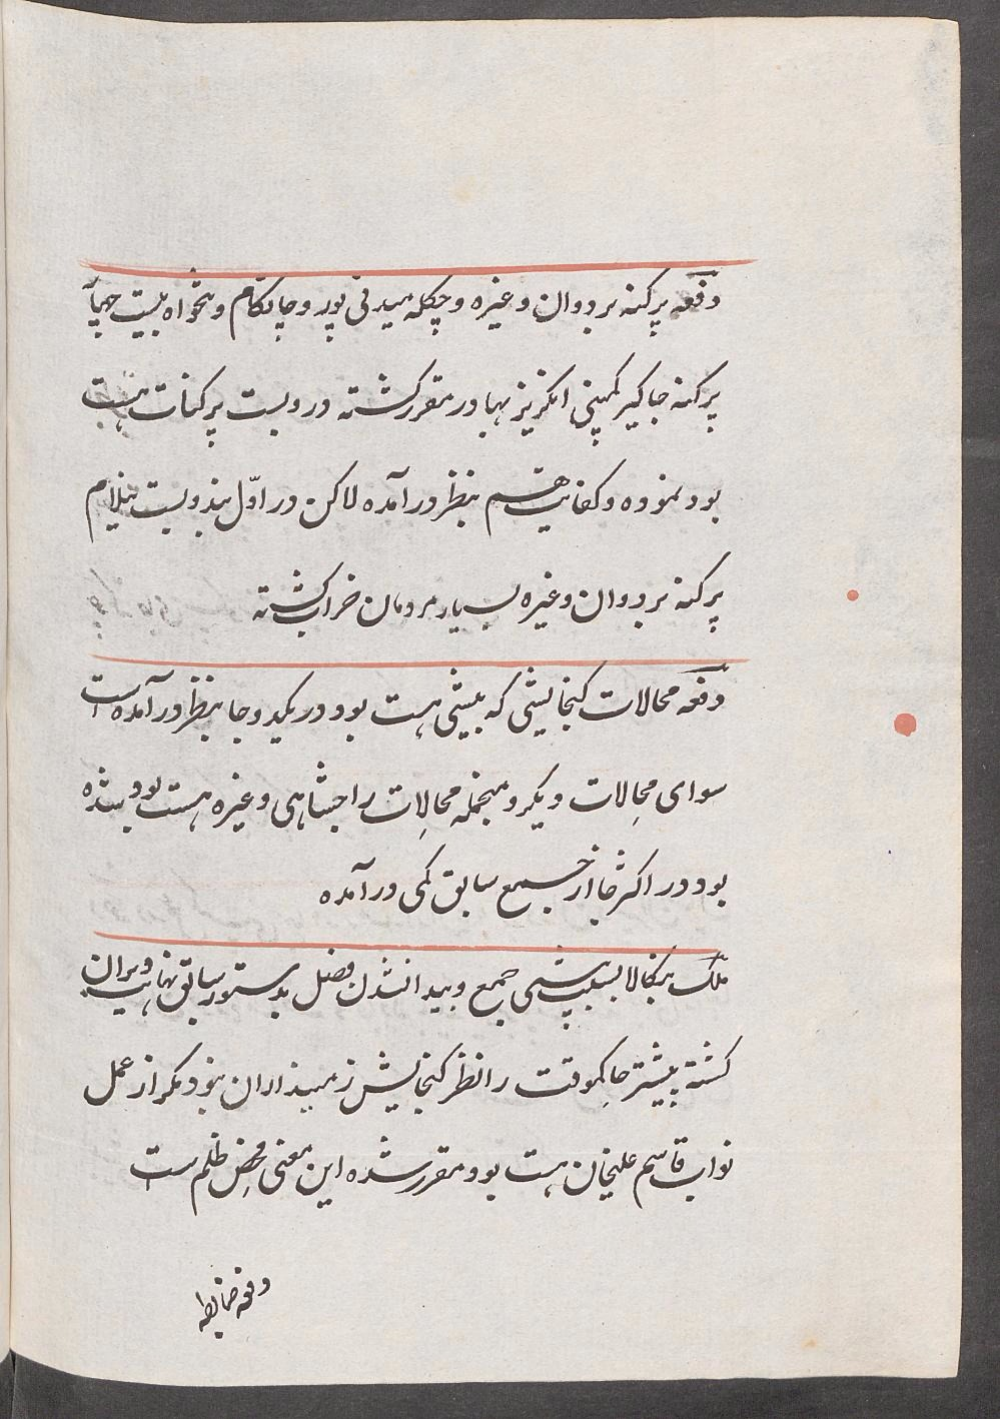 دفعه پرکنه بردوان و غیره و چکله میدنی پور و چاتکام و تنخواه بیست چهار
پرکنه جاکیر کمپنی انکریز بهادر مقرر کشته در وبست پرکنات هست
بود نموده و کفایت هم بنظر در آمده لاکن در اوّل بندوبست بنیلام
پرکنه بردوان و غیره بسیار مردمان خراب کشته
دفعه محالات کنجایشی که بیشی هست بود در یکدو جا بنظر در آمده است
سوای محالات دیکر و منجمله محالات راجشاهی و غیره هست بود شده
بود در اکثر جا از جمیع سابق کمی در آمده
ملک بنکالا بسبب بیشی جمع و پیدا نشدن فصل بدستور سابق نهایت ویران
کشته پیشتر حاکموقت را نظر کنجایش زمینداران بنود مکر از عمل
نواب قاسم علیخان هست بود مقرر شده این معنی محض ظلم ست
دفعه ضابطه